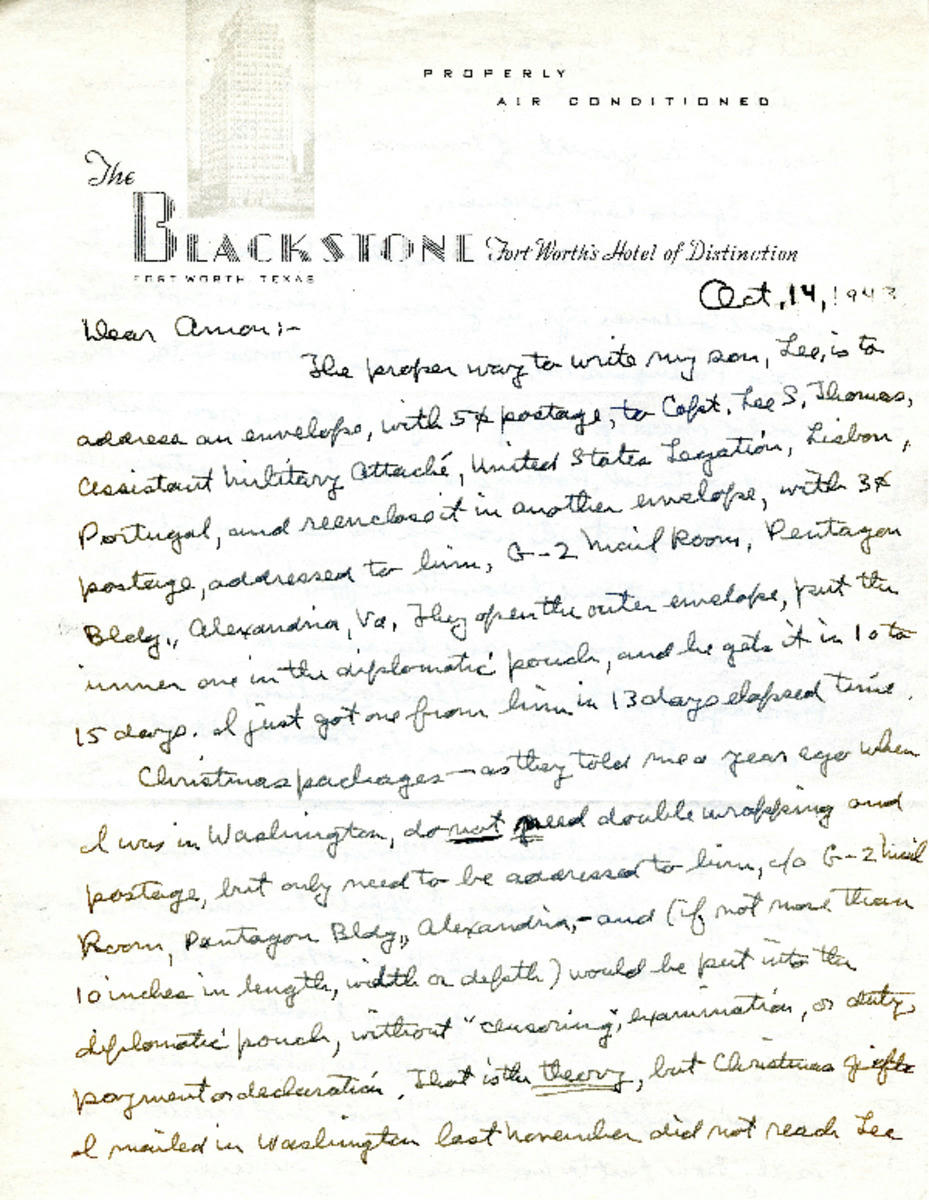 PROPERLY
AIR CONDITIONED
The
BLACKSTONE Fort Worth's Hotel of Distinction
FORT WORTH, TEXAS
Oct. 14, 1943
Dear Amon:-
The proper way to write my son, Lee, is to
address an envelope, with 5¢ postage, to Capt. Lee S. Thomas,
Assistant Military Attaché, United States Legation, Lisbon,
Portugal, and reenclose it in another envelope, with 3¢
postage, addressed to him, G-2 Mail Room, Pentagon
Bldg., Alexandria, Va. They open the outer envelope, put the
inner one in the diplomatic pouch, and he gets it in 10 to
15 days. I just got one from him in 13 days elapsed time.
Christmas packages—as they told me a year ago when
I was in Washington, do not need double wrapping and
postage, but only need to be addressed to him, c/o G-2 Mail
Room, Pentagon Bldg., Alexandria,- and (if not more than
10 inches in length, width or depth) would be put into the
diplomatic pouch, without "censoring", examination, or duty,
payment or declaration. That is the theory, but Christmas gifts
I mailed in Washington last November did not reach Lee